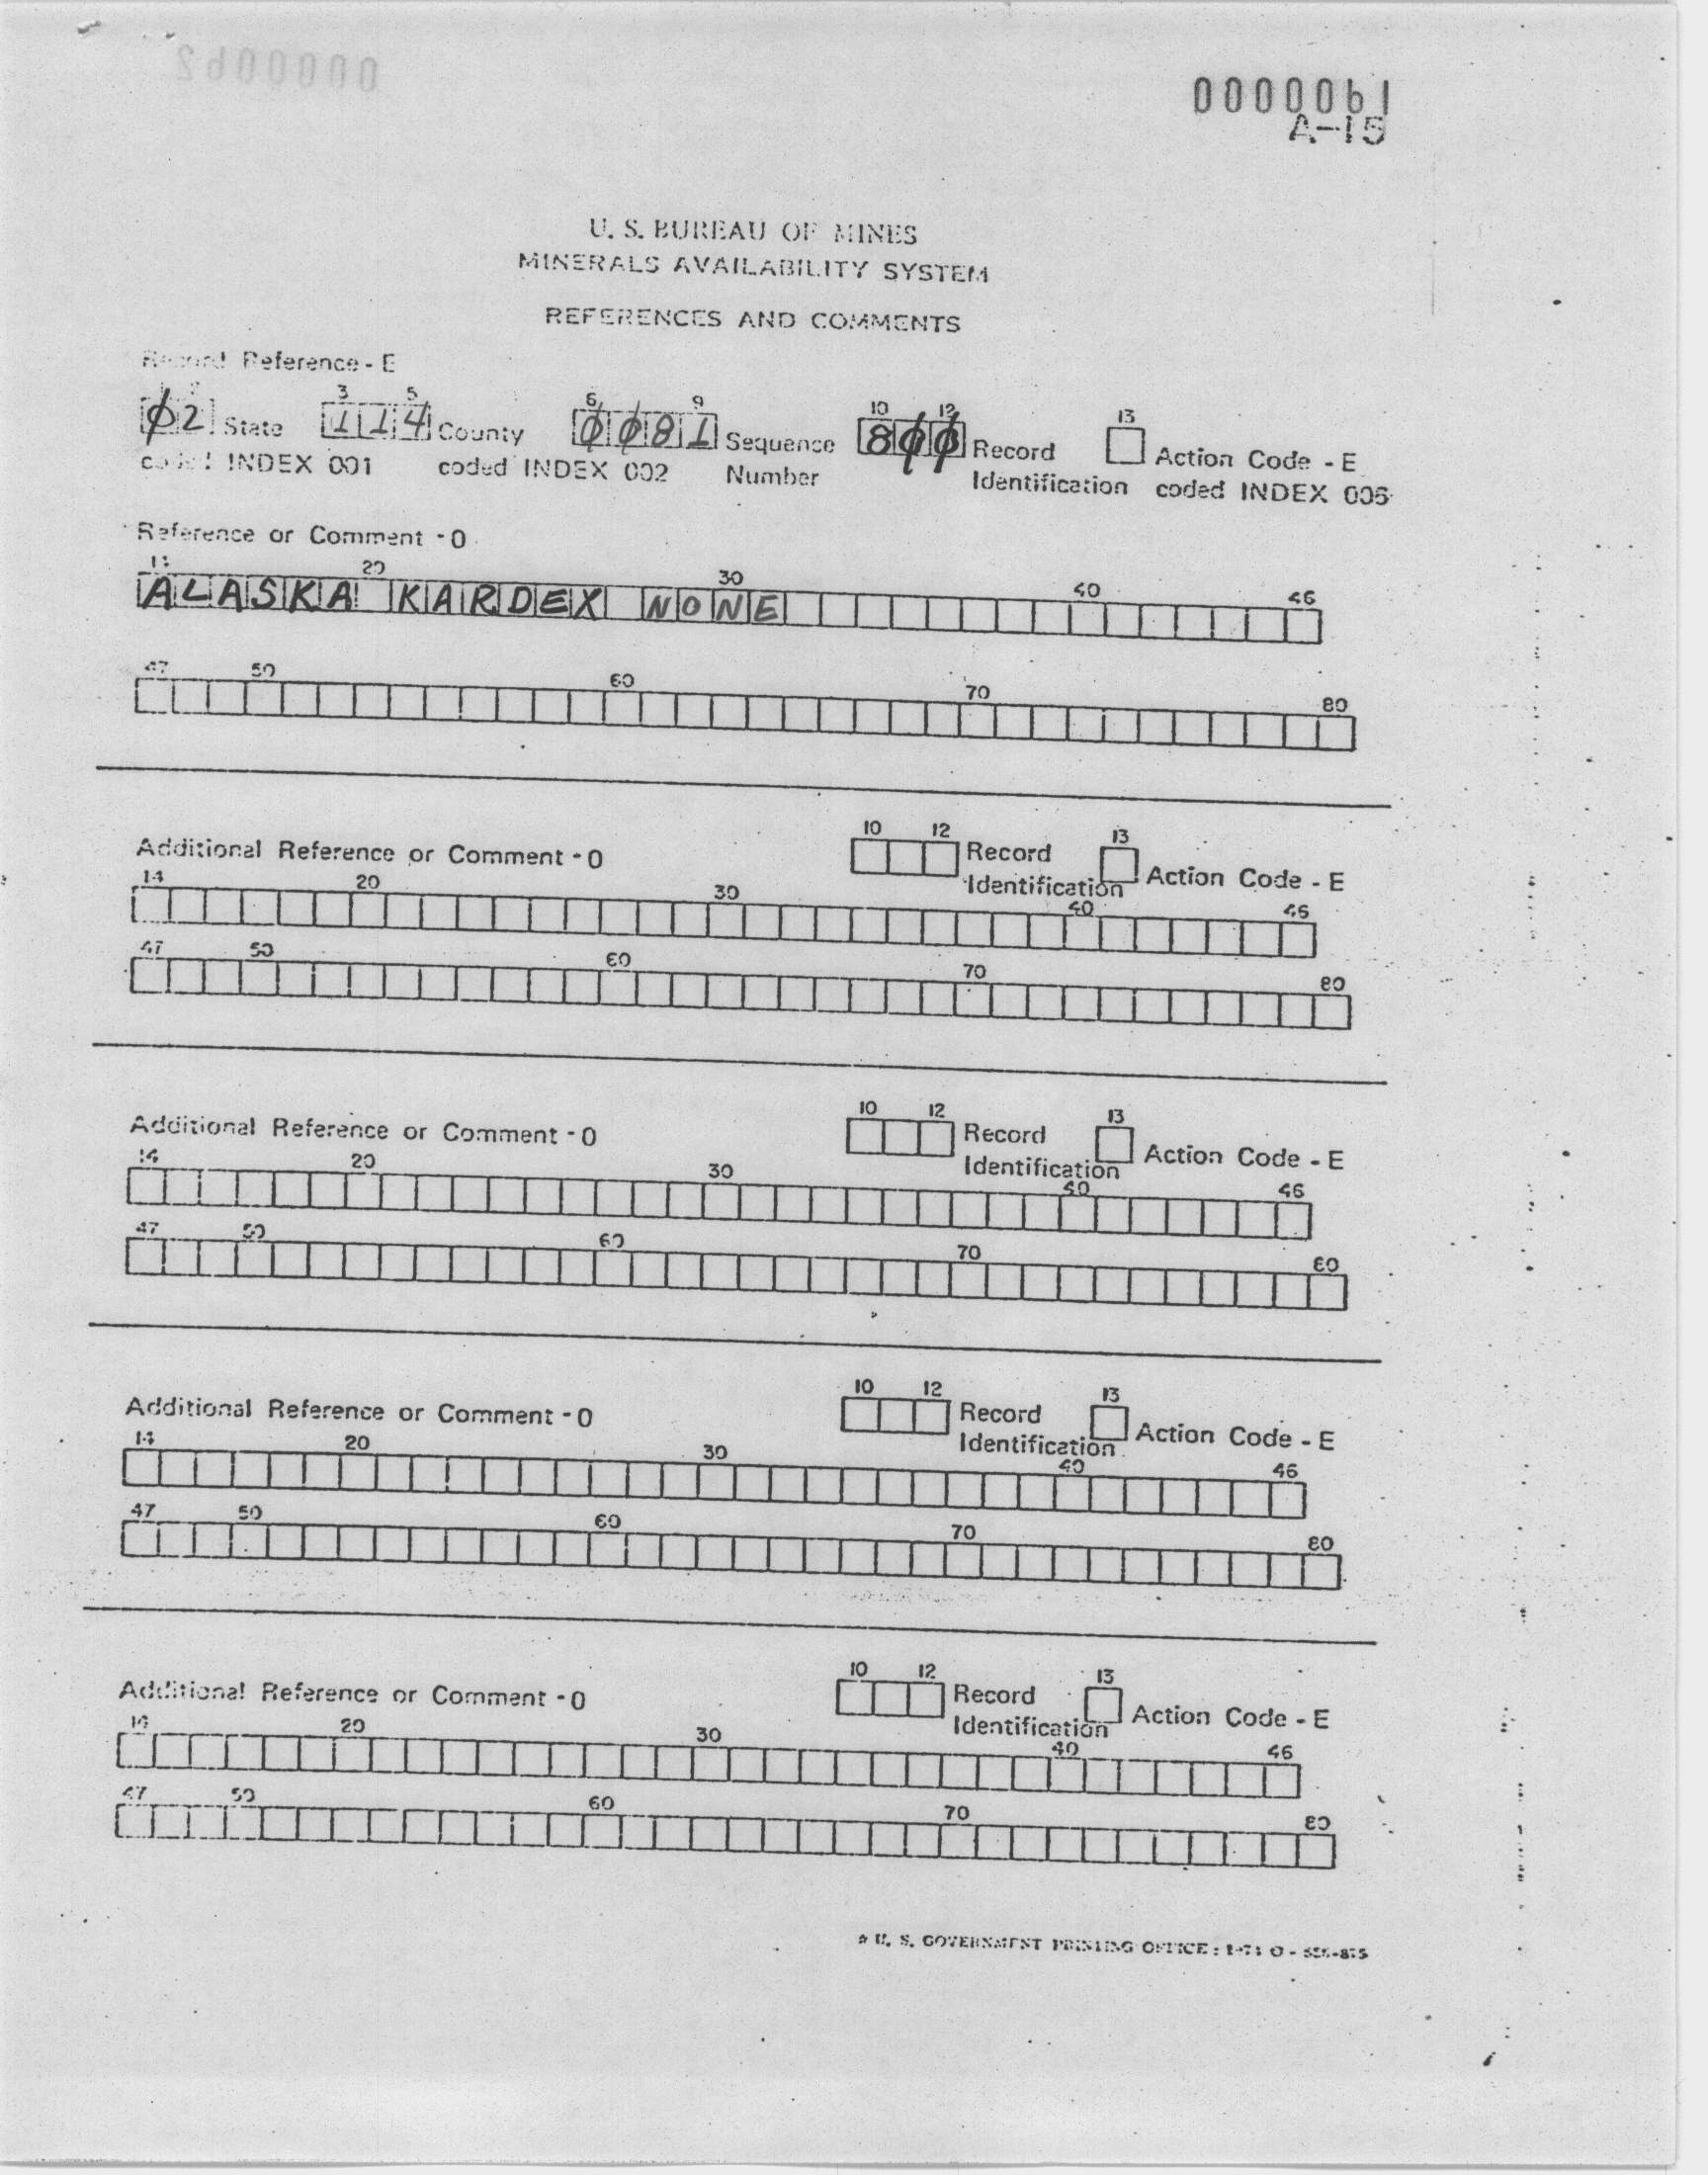 0000061
A-15
U. S. BUREAU OF MINES
MINERALS AVAILABILITY SYSTEM
REFERENCES AND COMMENTS
Record Reference - E
3 5 6 9 10 12 13
02 State 114 County 0081 Sequence 800 Record Action Code - E
coded INDEX 001 coded INDEX 002 Number Identification coded INDEX 006
Reference or Comment - O
14 20 30 40 46
ALASKA KARDEX NONE
47 50 60 70 80
Additional Reference or Comment - O 10 12 Record 13 Action Code - E
Identification
14 20 30 40 46
47 50 60 70 80
Additional Reference or Comment - O 10 12 Record 13 Action Code - E
Identification
14 20 30 40 46
47 50 60 70 80
Additional Reference or Comment - O 10 12 Record 13 Action Code - E
Identification
14 20 30 40 46
47 50 60 70 80
Additional Reference or Comment - O 10 12 Record 13 Action Code - E
Identification
14 20 30 40 46
47 50 60 70 80
U. S. GOVERNMENT PRINTING OFFICE :